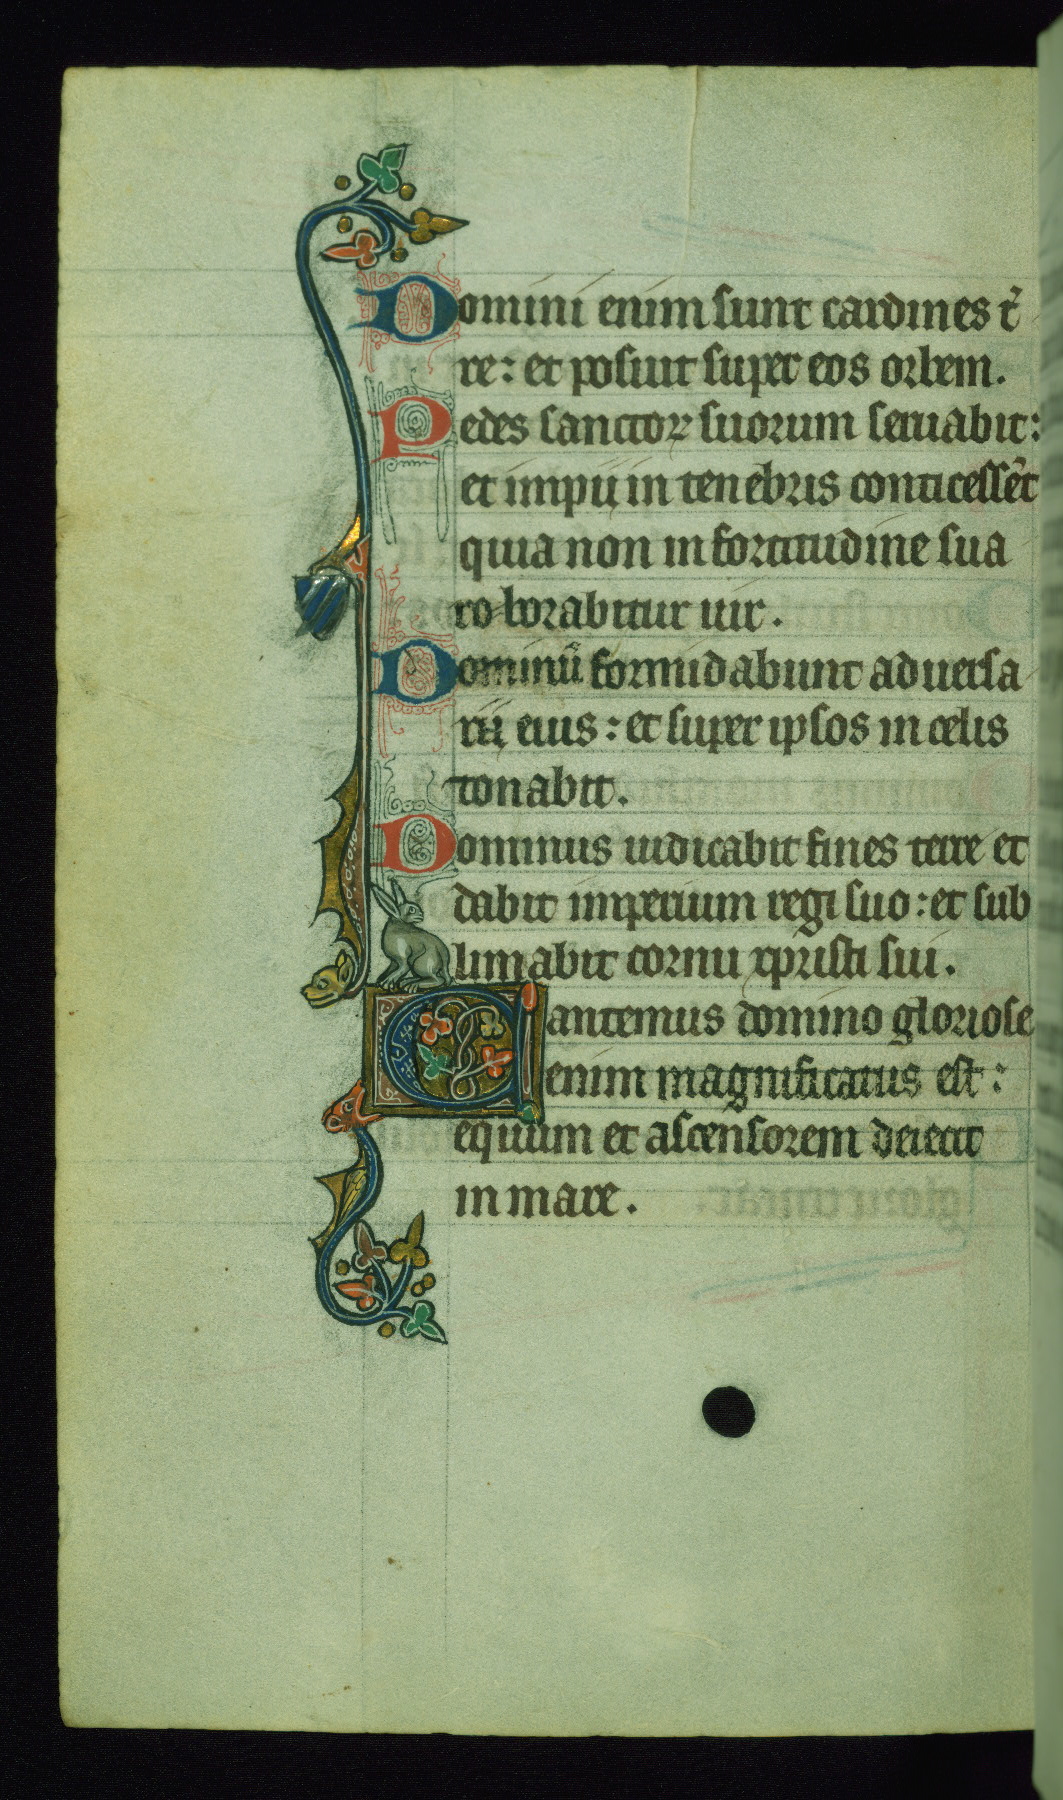 Domini enim sunt cardines t̉
re: et posuit super eos orbem.
Pedes sanctoꝝ suorum seruabit:
et impii in tenebris conticessēt
quia non in fortitudine sua
roborabitur uir.
Dominū formidabunt aduersa
rii eius: et super ipsos in celis
tonabit.
Dominus iudicabit fines terre et
dabit imperium regi suo: et sub
limabit cornu xpristi sui.
Cantemus domino gloriose
enim magnificatus est:
equum et ascensorem deiecit
in mare.